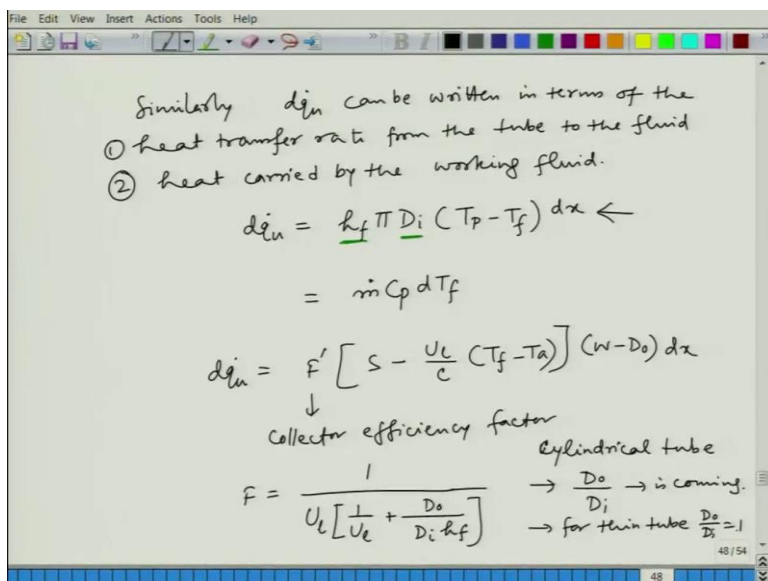 File Edit View Insert Actions Tools Help
Similarly dq̇u can be written in terms of the
① heat transfer rate from the tube to the fluid
② heat carried by the working fluid.
dq̇u = hf π Di (Tp - Tf) dx ←
= ṁ Cp dTf
dq̇u = F' [ S - Ul/C (Tf - Ta) ] (W - Do) dx
↓
Collector efficiency factor
F = 1 / Ul [ 1/Ul + Do/(Di hf) ]
Cylindrical tube
→ Do/Di → is coming.
→ for thin tube Do/Di = 1
48 / 54
48